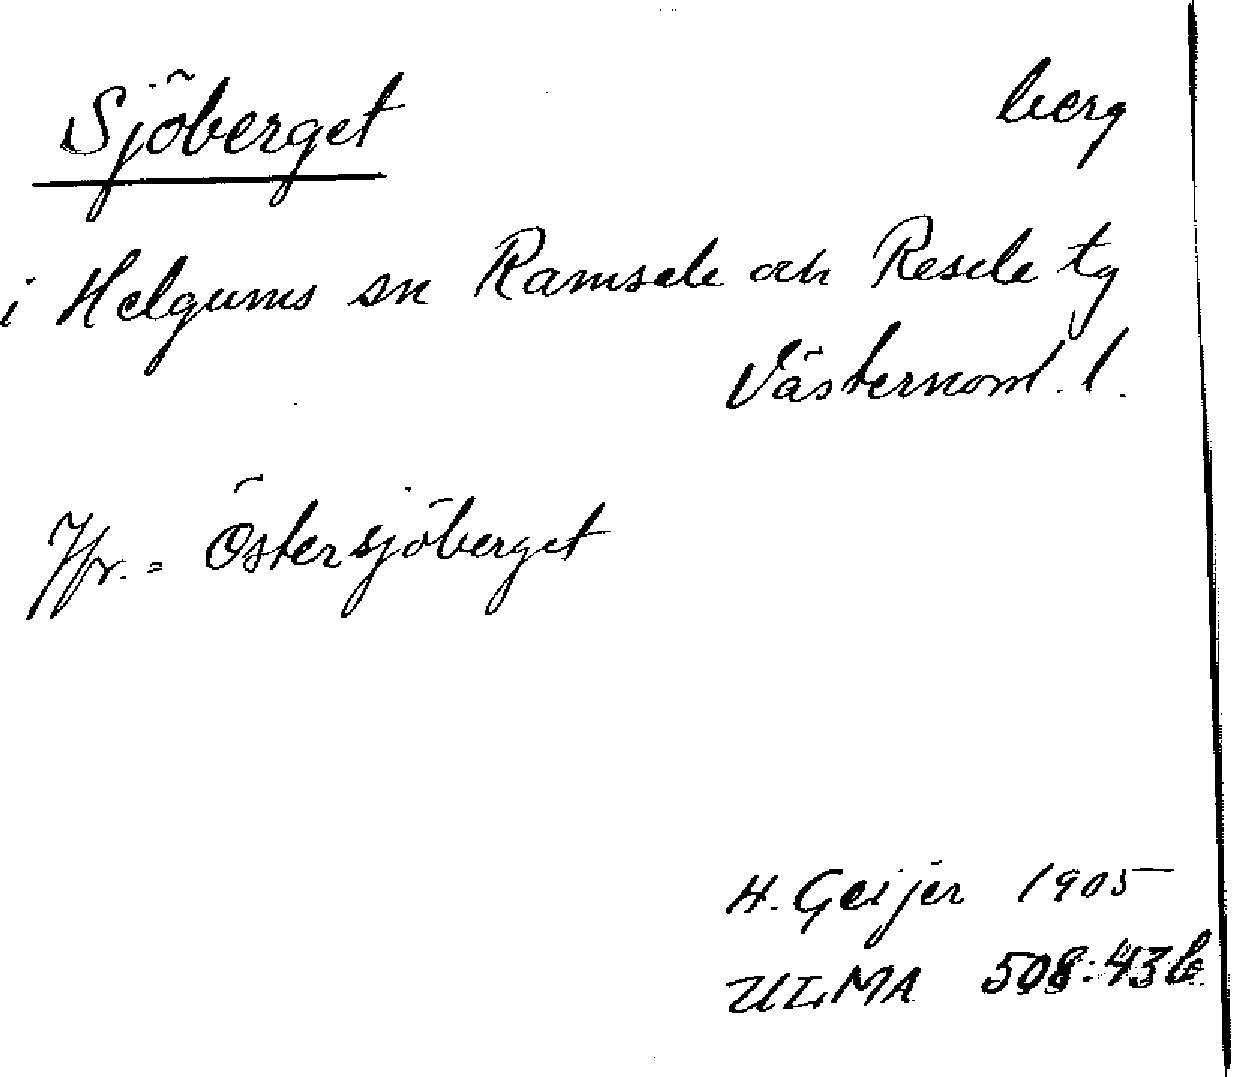 Sjöberget berg
i Helgums sn Ramsele och Resele tg
Västernorrl. l.
Jfr. = Östersjöberget
H. Geijer 1905
ULMA 508:43 b